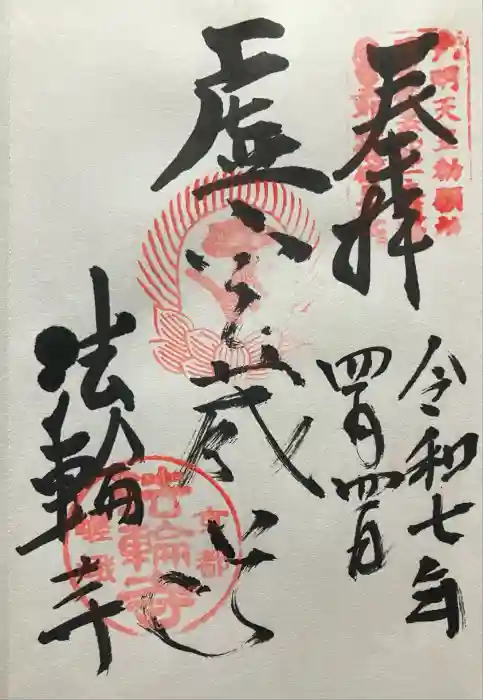 元明天皇勅願所
奉拝
令和七年
四月四日
虚空蔵尊
法輪寺
京都
法輪寺
嵯峨